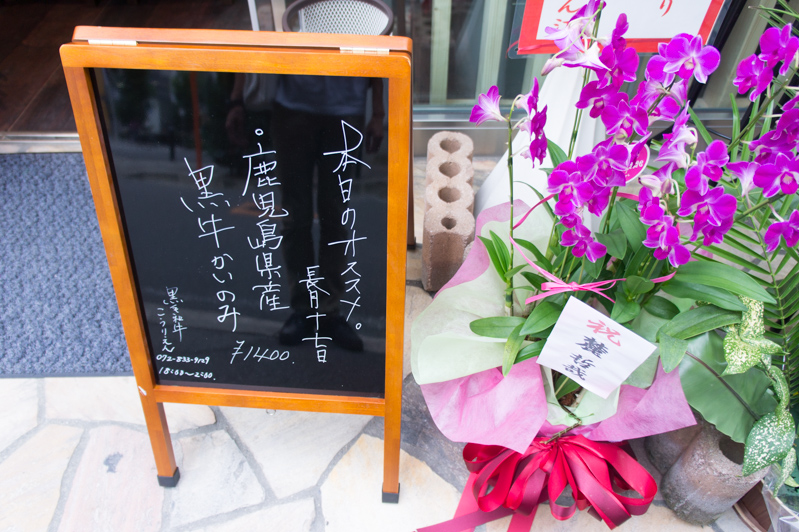 本日のオススメ。
長月十七日
・鹿児島県産
黒牛かいのみ
¥1400.
黒毛和牛
こうりえん
072-833-9129
18:00~2:00.
祝